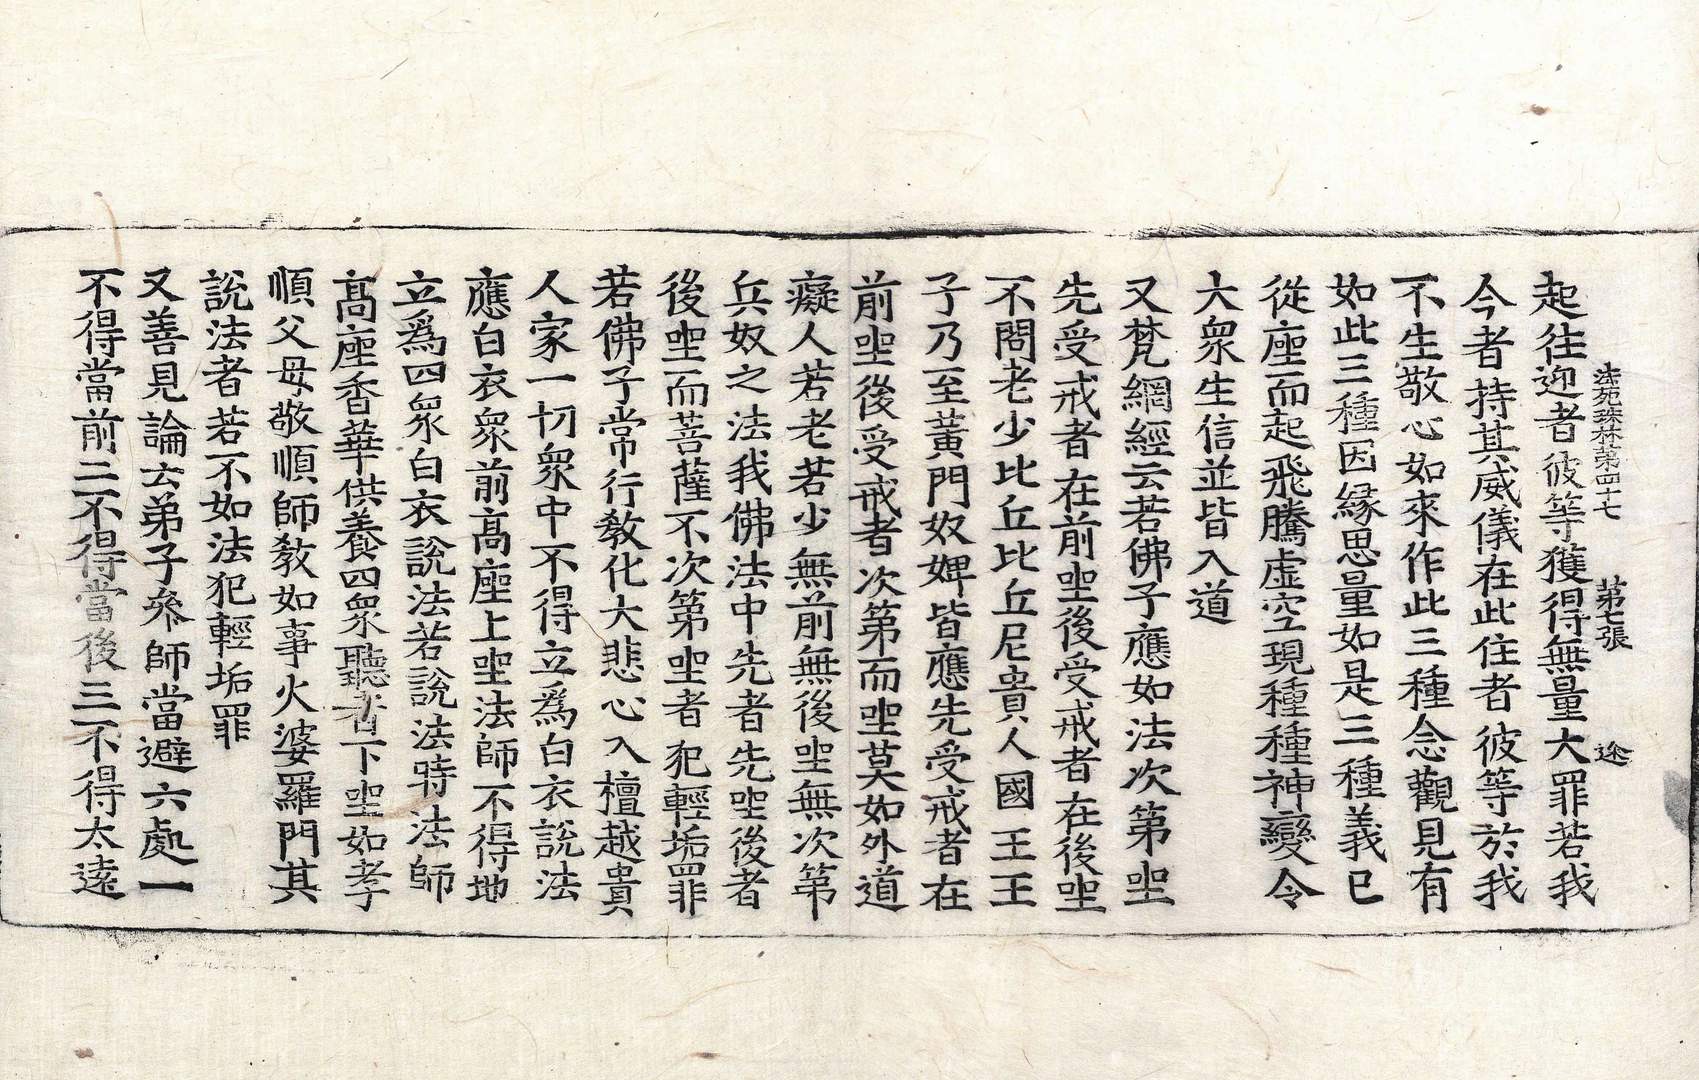 法苑珠林第四十七　第七張　途
起往迎者彼等獲得無量大罪若我
今者持其威儀在此住者彼等於我
不生敬心如來作此三種念觀見有
如此三種因緣思量如是三種義已
從座而起飛騰虛空現種種神變令
大衆生信並皆入道
又梵網經云若佛子應如法次第坐
先受戒者在前坐後受戒者在後坐
不問老少比丘比丘尼貴人國王王
子乃至黃門奴婢皆應先受戒者在
前坐後受戒者次第而坐莫如外道
癡人若老若少無前無後坐無次第
兵奴之法我佛法中先者先坐後者
後坐而菩薩不次第坐者犯輕垢罪
若佛子常行教化大悲心入檀越貴
人家一切衆中不得立爲白衣說法
應白衣衆前高座上坐法師不得地
立爲四衆白衣說法若說法時法師
高座香華供養四衆聽者下坐如孝
順父母敬順師教如事火婆羅門其
說法者若不如法犯輕垢罪
又善見論云弟子參師當避六處一
不得當前二不得當後三不得太遠